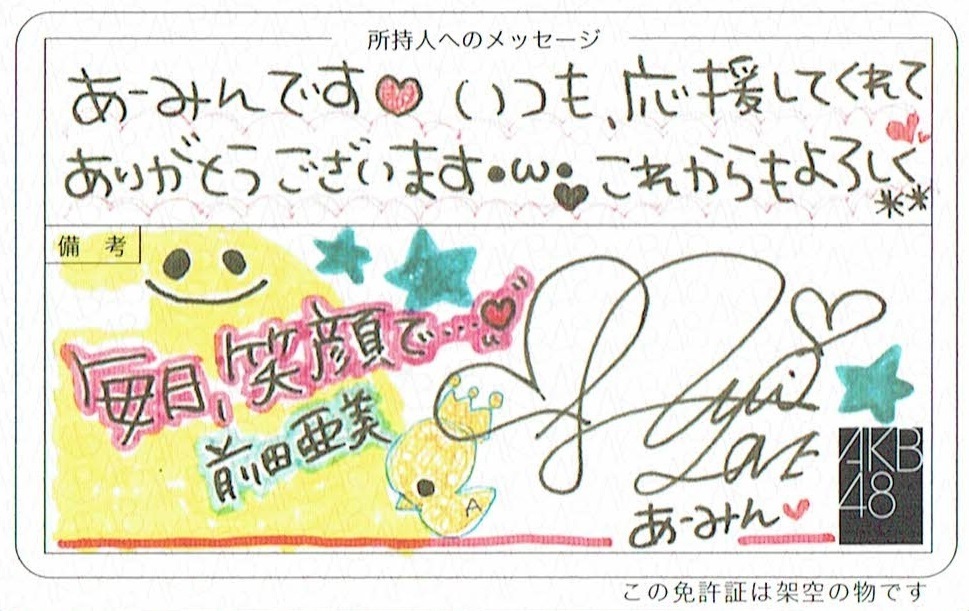 所持人へのメッセージ
あーみんです♥ いつも、応援してくれて
ありがとうございます•ω• これからもよろしく
**
備考
毎日、笑顔で…♥
前田亜美
Love
あーみん♥
A
AKB
48
この免許証は架空の物です